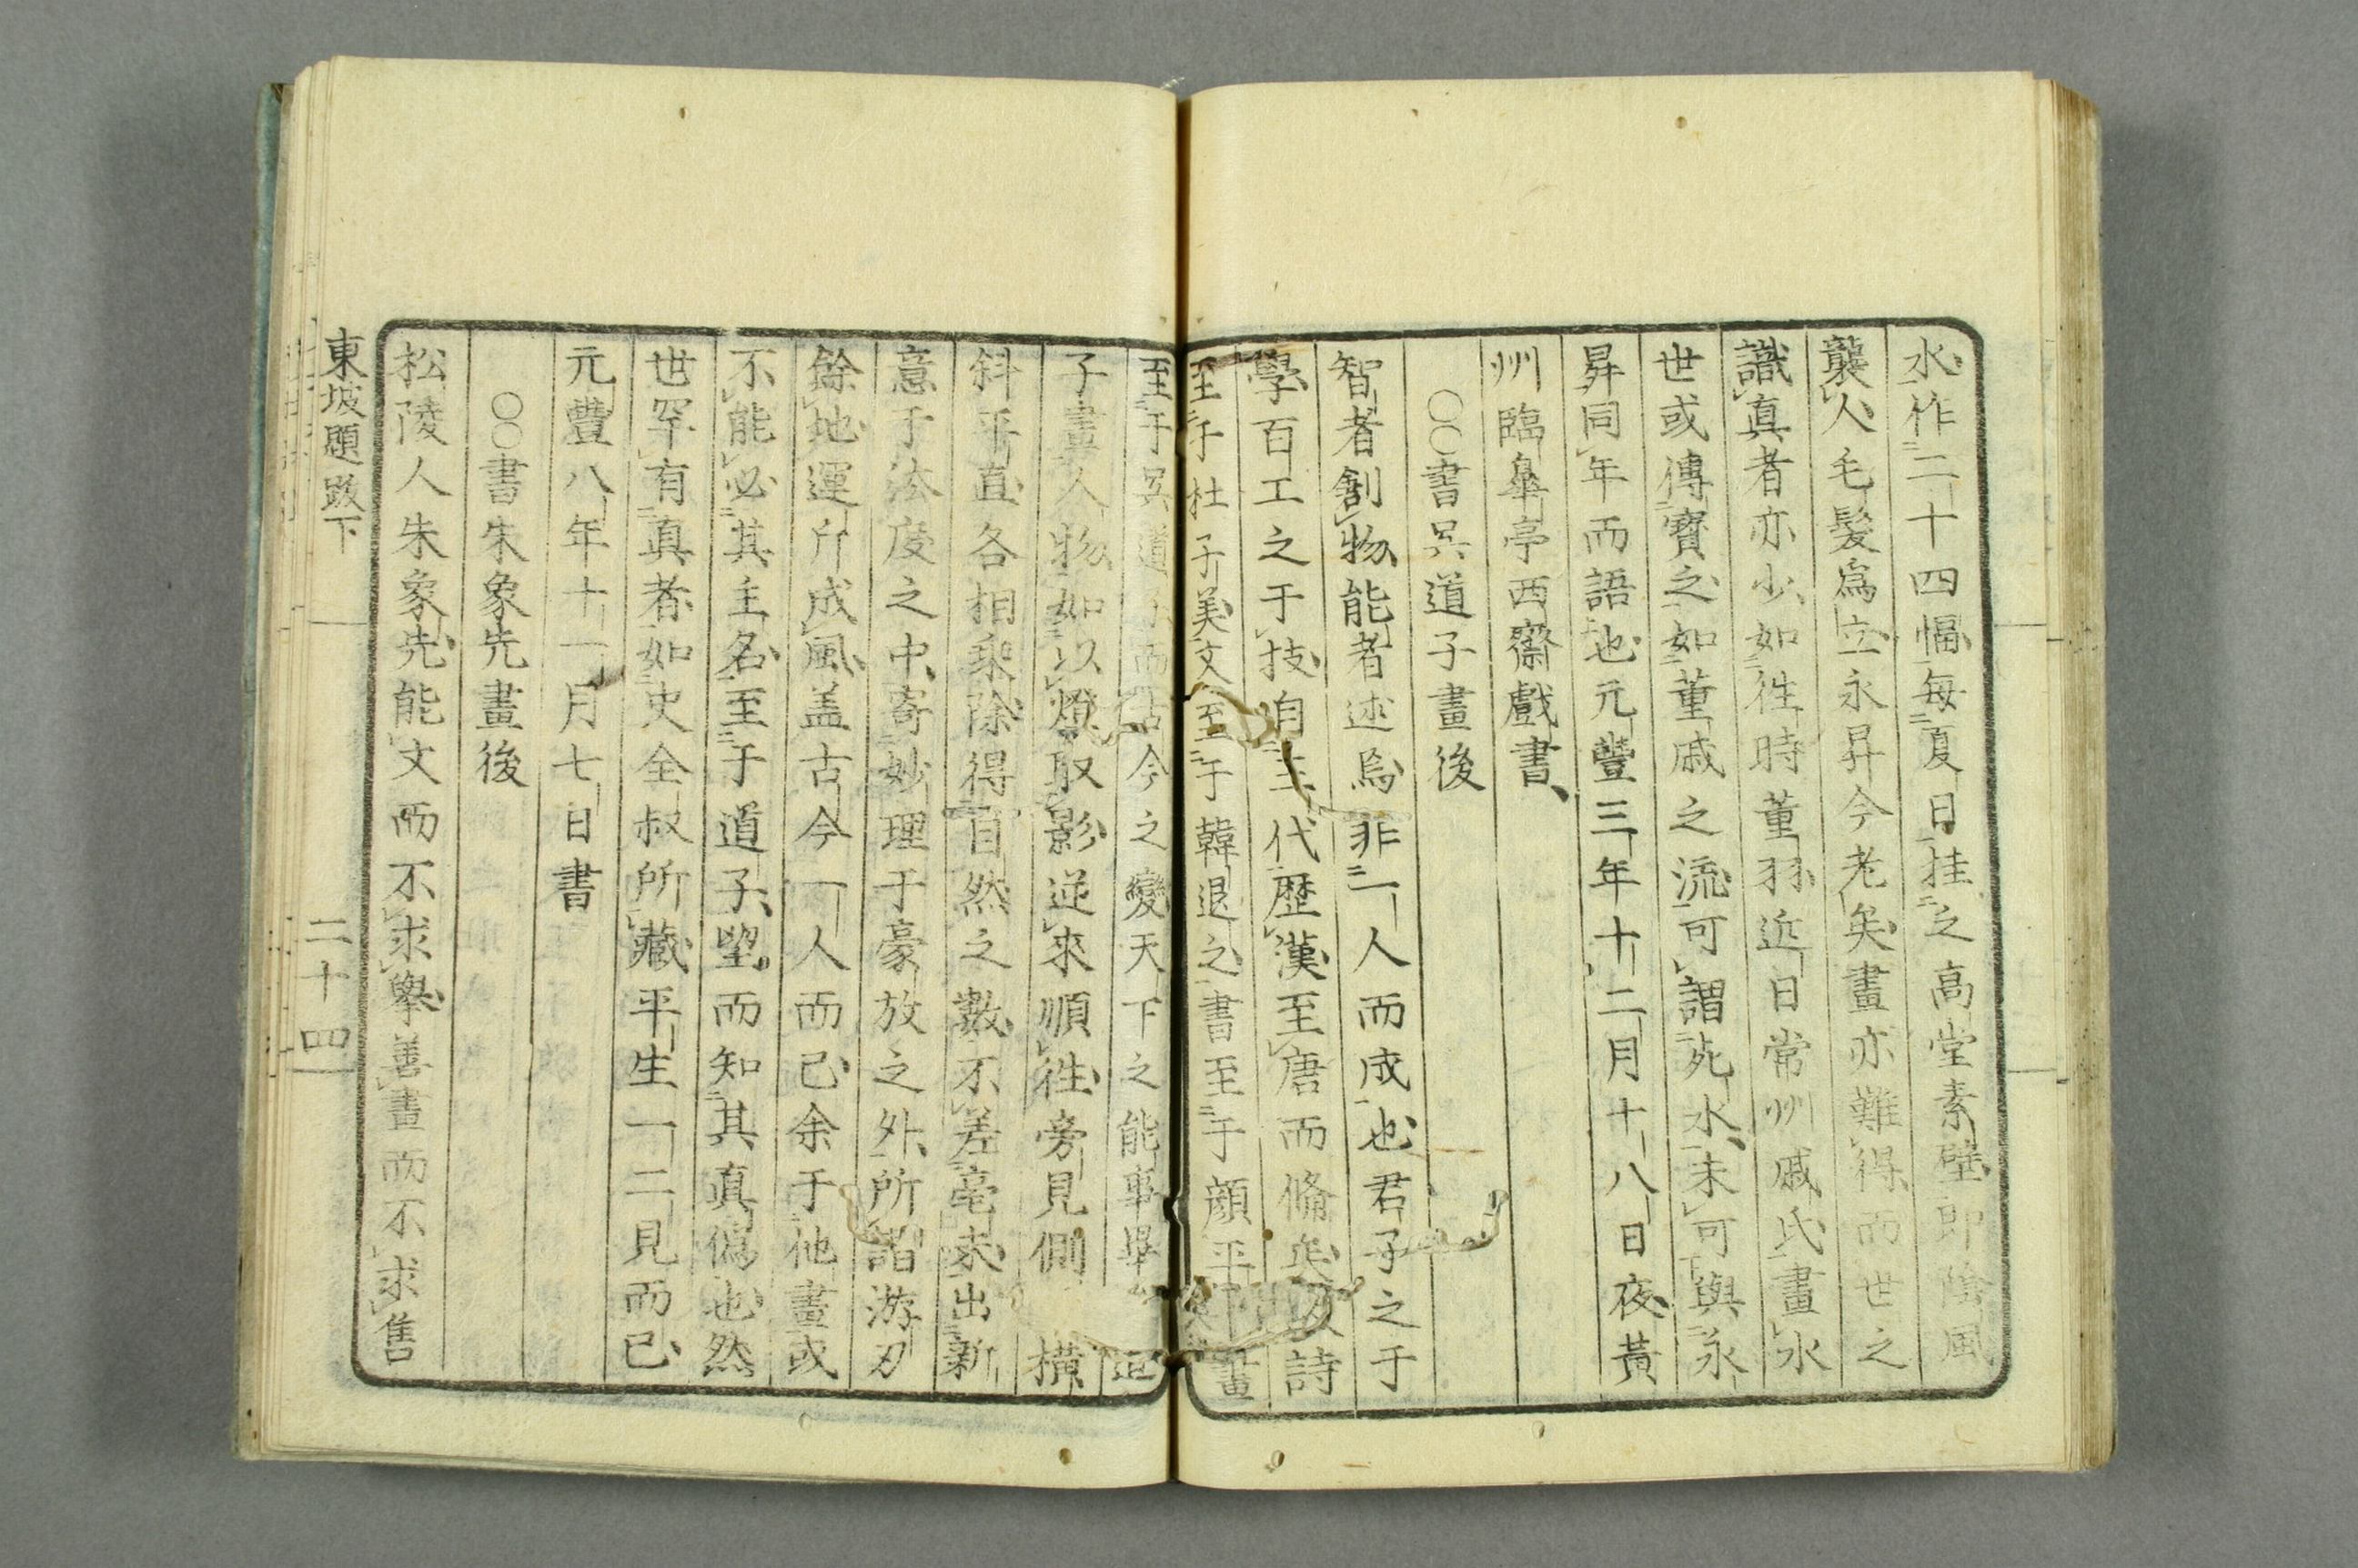 水作二十四幅每夏日挂之高堂素壁即陰風
襲人毛髮爲立永昇今老矣畫亦難得而世之
識真者亦少如徃時董羽近日常州戚氏畫水
世或傳寳之如董戚之流可謂死水未可與永
昇同年而語也元豐三年十二月十八日夜黃
州臨皐亭西齋戲書
〇〇書吴道子畫後
智者創物能者述焉非一人而成也君子之于
學百工之于技自三代歴漢至唐而備矣故詩
至于杜子美文至于韓退之書至于顔平 畫
至于吴道子而古今之變天下之能事畢 道
子畫人物如以燈取影逆來順徃旁見側 橫
斜平直各相乗除得自然之數不差毫末出新
意于法度之中寄妙理于豪放之外所謂游刃
餘地運斤成風盖古今一人而已余于他畫或
不能必其主名至于道子望而知其真僞也然
世罕有真者如史全叔所藏平生一二見而已
元豐八年十一月七日書
〇〇書朱象先畫後
松陵人朱象先能文而不求擧善畫而不求售
東坡題跋下
二十四